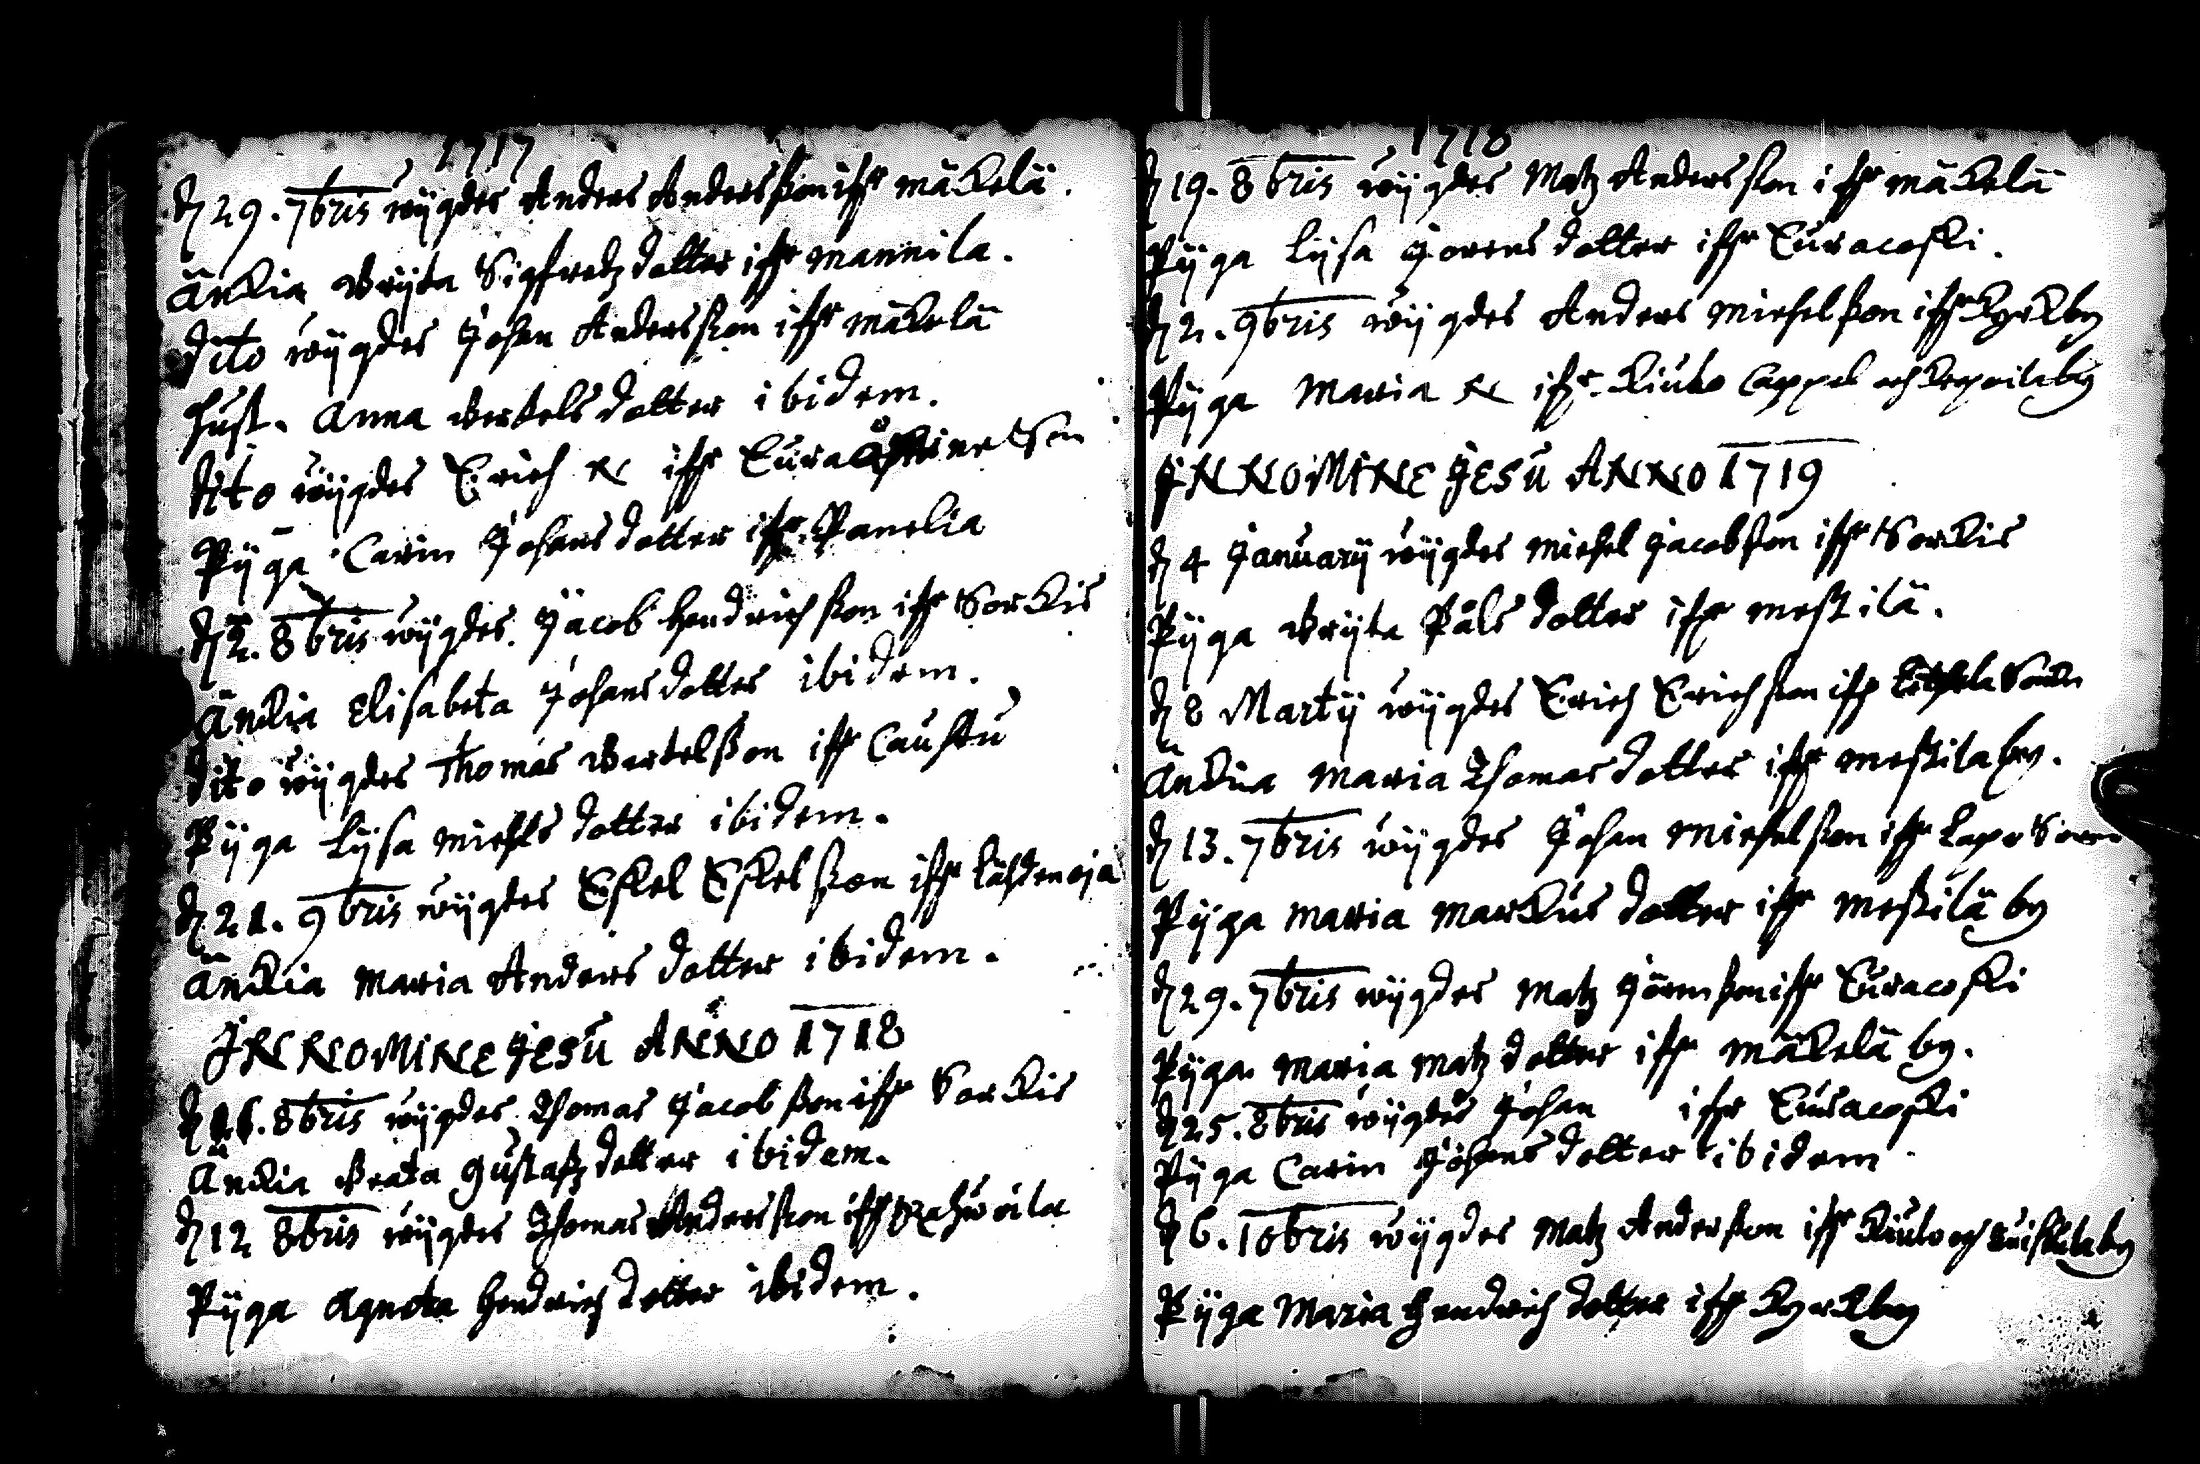 1717
d 29. 7bris wijgdes Anders Andersßon iffr mäkelä.
änkia Brijta Sigfredz dotter iffr mannila.
dito wijgdes Johan Andersßon iffr mäkelä
hust. Anna Bertels dotter ibidem.
dito wijgdes Erich N iffr Eura
Pijga Carin Johans dotter iffr Panelia
d 2. 8bris wijgdes Jacob Hendrichßon iffr Sorkis
Änkia Elisabeta Johans dotter ibidem.
dito wijgdes Thomas Bertelßon iffr Cauttu
Pijga Lijsa Michels dotter ibidem.
d 21. 9bris wijgdes Eskel Eskelßon iffr Lähdenoja
Änkia Maria Anders dotter ibidem.
IN NOMINE JESU ANNO 1718
d 8bris wijgdes Thomas Jacobßon iffr Sorkis
Änkia Beata Gustafz dotter ibidem.
d 12 8bris wijgdes Thomas Andersßon iffr
Pijga Agneta Hendrich dotter ibidem.
1718
d 19. 8bris wijgdes Matz Andersßon iffr mäkelä
Pijga Lijsa Jörens dotter iffr Euracoski.
d 2. 9bris wijgdes Anders Michelßon iffr Kyrkby
Pijga Maria N iffr Kiulo Cappel och by
IN NOMINE JESU ANNO 1719
d 4 January wijgdes Michel Jacobßon iffr Sorkis
Pijga Brijta Påls dotter iffr mestilä.
d 8 Martij wijgdes Erich Erichßon iffr
Änkia Maria Thomas dotter iffr mestila by.
d 13. 7bris wijgdes Johan Michelßon iffr Lapo
Pijga Maria Markus dotter iffr mestilä by
d 29. 7bris wijgdes Matz Jörenßon iffr Euracoski
Pijga Maria Matz dotter iffr mäkelä by.
d 25. 8bris wijgdes Johan iffr Euracoski
Pijga Carin Johans dotter ibidem
d 6. 10bris wijgdes Matz Anderßon iffr Kiulo och by
Pijga Maria Hendrich dotter iffr Kyrkby